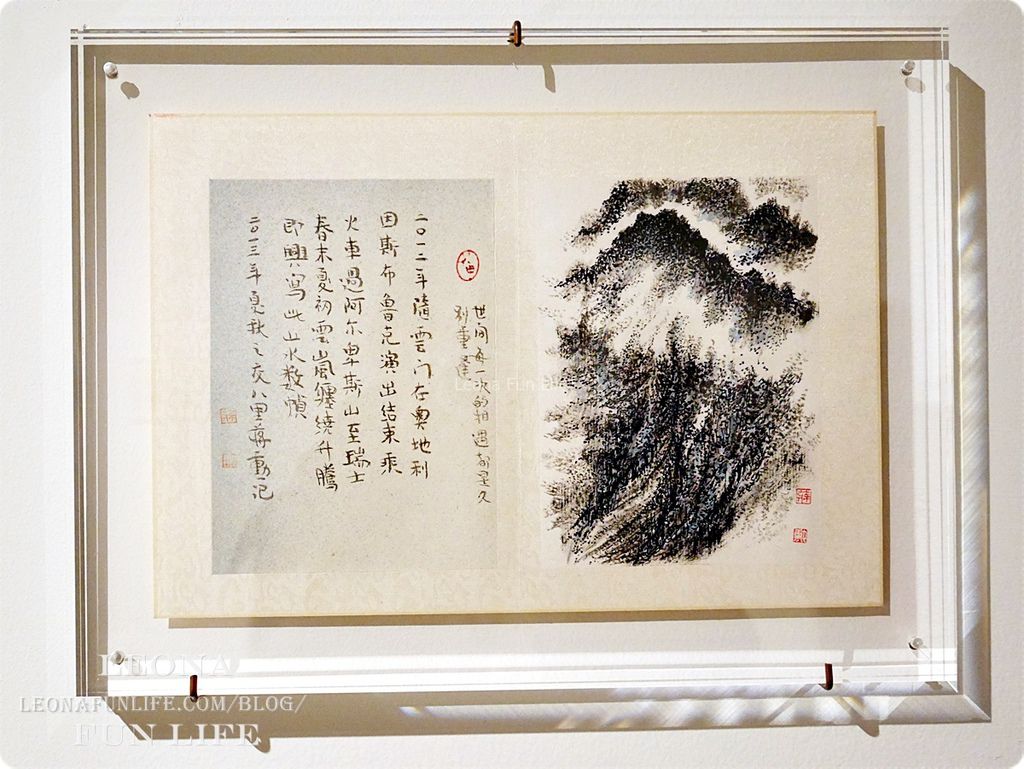 世间每一次的相遇都是久
别重逢
二〇一二年隨雲门在奧地利
因斯布鲁克演出结束乘
火車過阿尔卑斯山至瑞士
春末夏初雲嵐纏繞升騰
即興寫此山水數幀
二〇一三年夏秋之交八里蔣勳記
Leona Fun
LEONA
LEONAFUNLIFE.COM/BLOG/
FUN LIFE